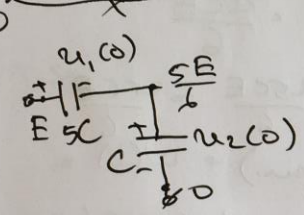 u₁(0)
+ 5E/6
E 5C + u₂(0)
C -
0